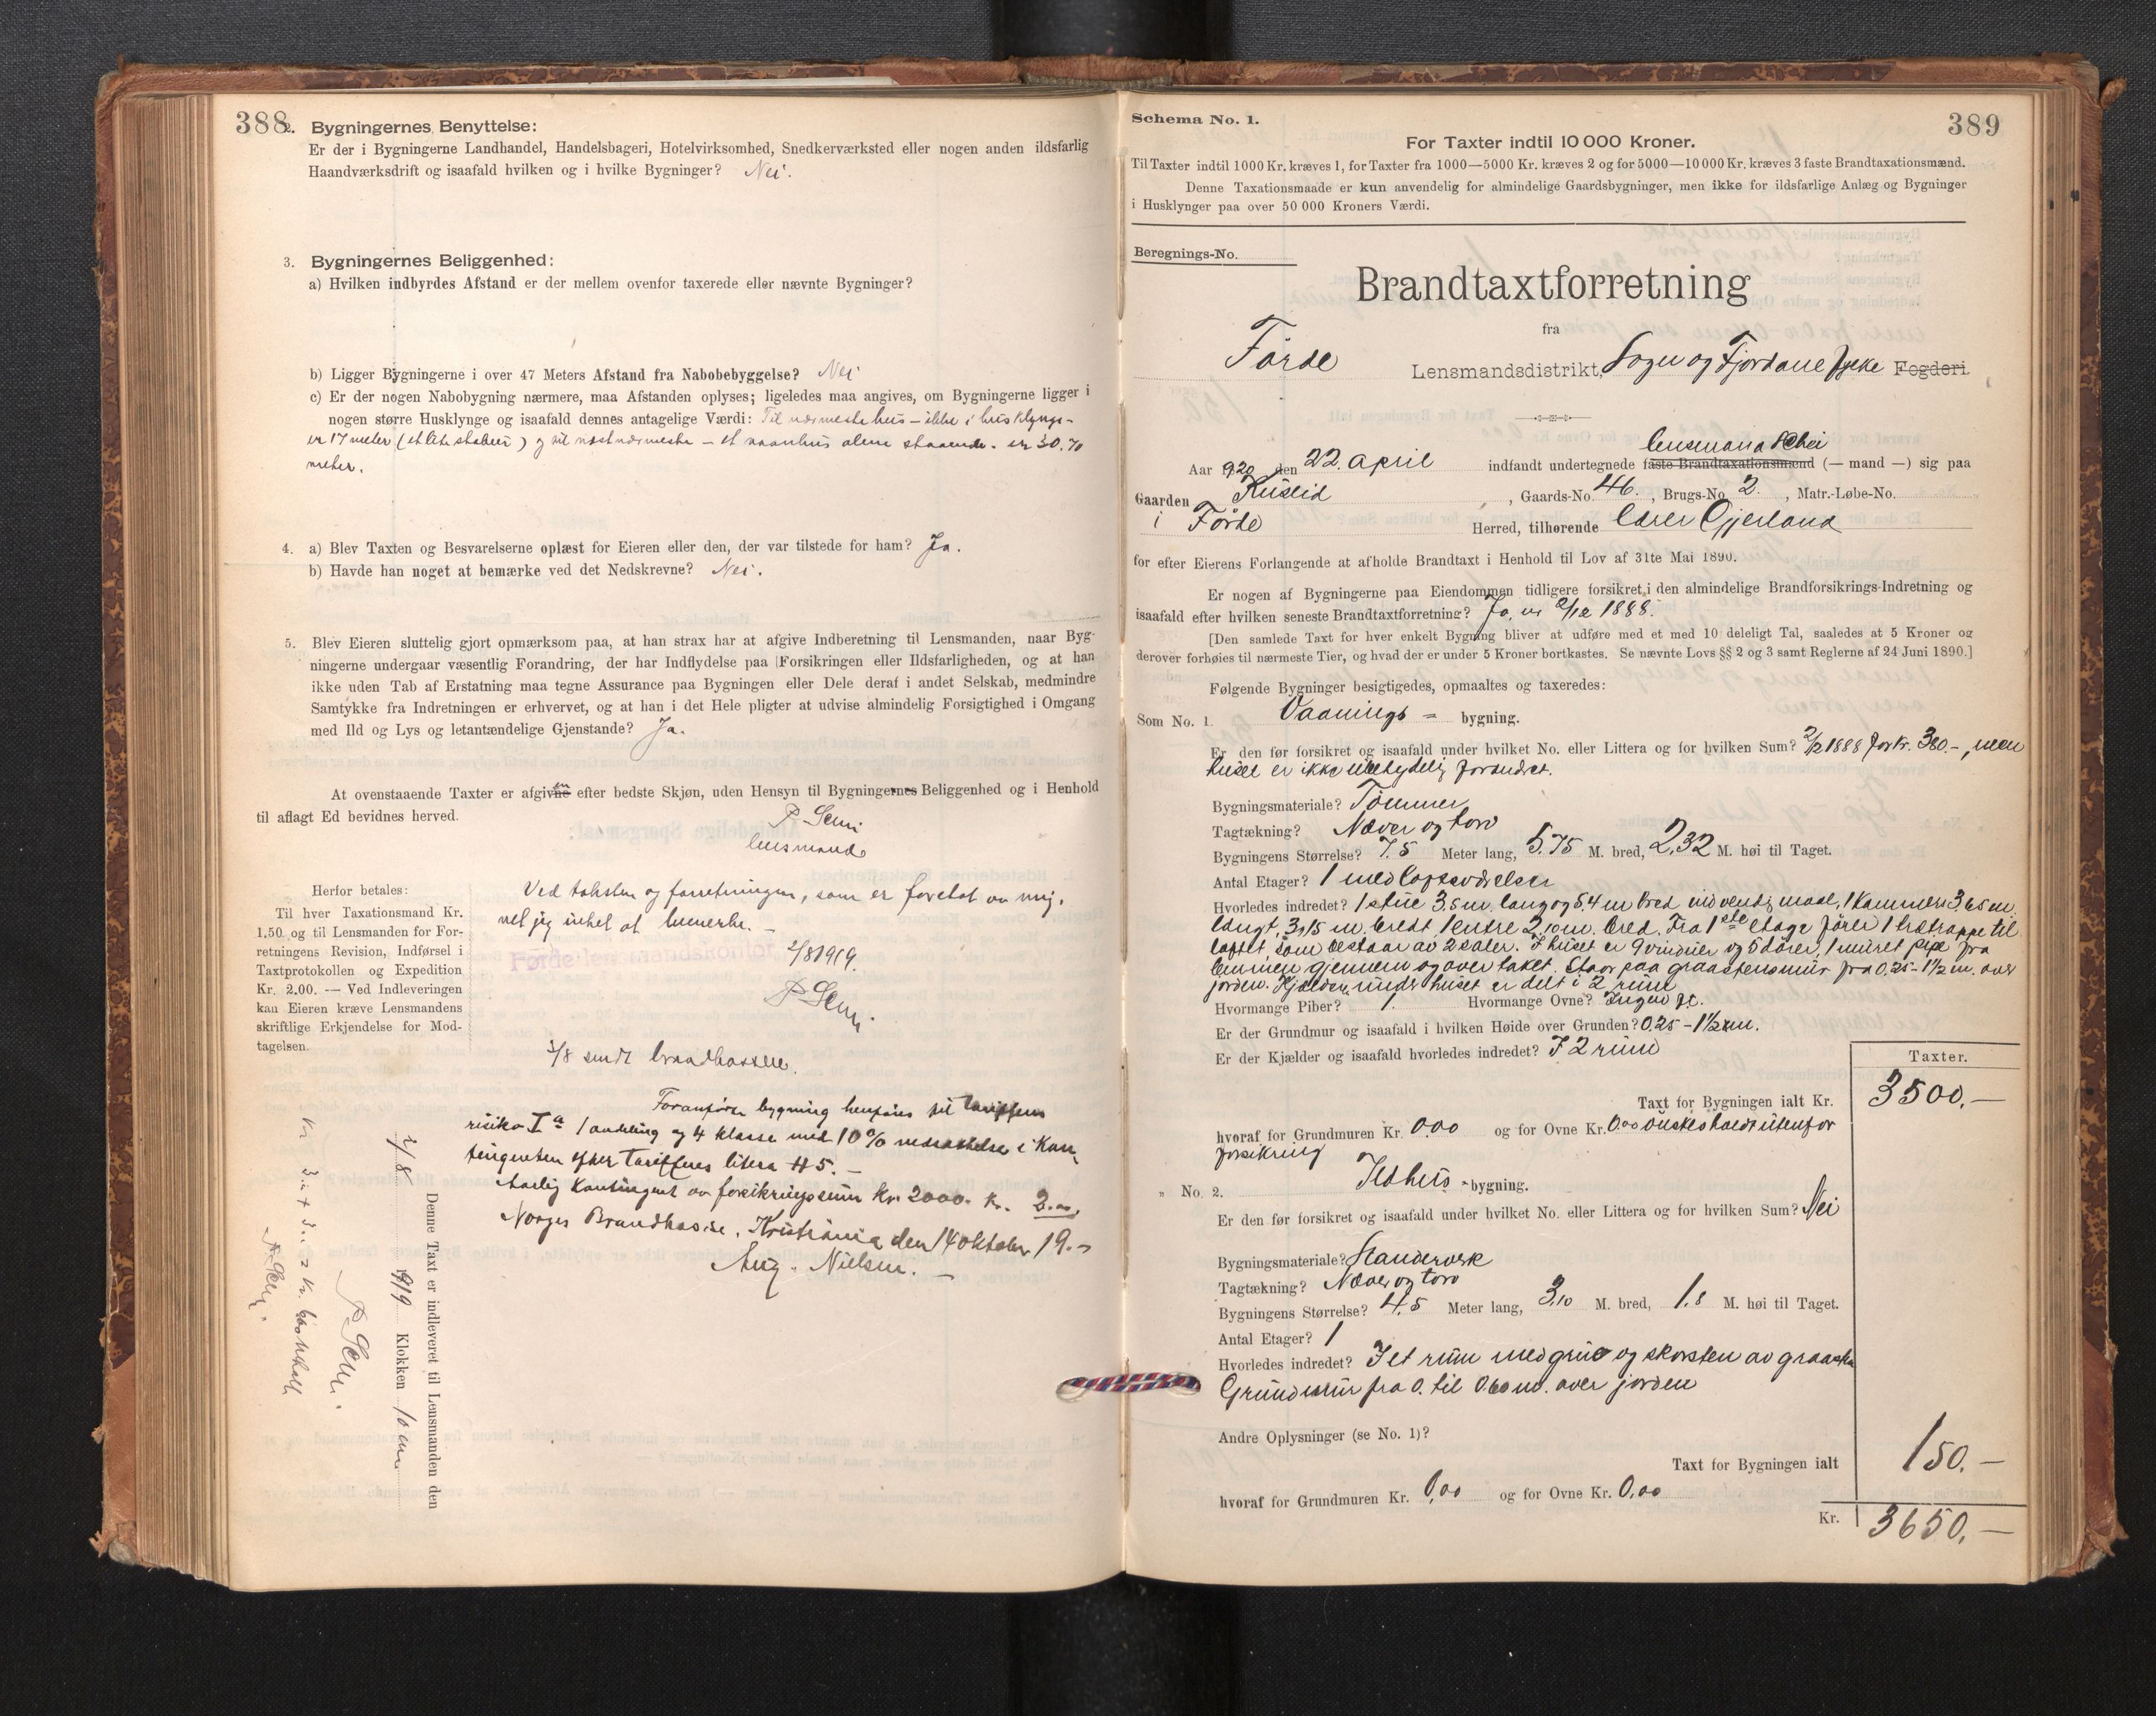 388
2. Bygningernes Benyttelse:
Er der i Bygningerne Landhandel, Handelsbageri, Hotelvirksomhed, Snedkerværksted eller nogen anden ildsfarlig
Haandværksdrift og isaafald hvilken og i hvilke Bygninger? Nei.
3. Bygningernes Beliggenhed:
a) Hvilken indbyrdes Afstand er der mellem ovenfor taxerede eller nævnte Bygninger?
b) Ligger Bygningerne i over 47 Meters Afstand fra Nabobebyggelse? Nei
c) Er der nogen Nabobygning nærmere, maa Afstanden oplyses; ligeledes maa angives, om Bygningerne ligger i
nogen større Husklynge og isaafald dennes antagelige Værdi: Til nærmeste hus – ikke i husklynge –
er 17 meter (et lite stabur) og til næstnærmeste – et vaanhus alene staaende. er 30.70
meter.
4. a) Blev Taxten og Besvarelserne oplæst for Eieren eller den, der var tilstede for ham? Ja.
b) Havde han noget at bemærke ved det Nedskrevne? Nei.
5. Blev Eieren sluttelig gjort opmærksom paa, at han strax har at afgive Indberetning til Lensmanden, naar Byg-
ningerne undergaar væsentlig Forandring, der har Indflydelse paa Forsikringen eller Ildsfarligheden, og at han
ikke uden Tab af Erstatning maa tegne Assurance paa Bygningen eller Dele deraf i andet Selskab, medmindre
Samtykke fra Indretningen er erhvervet, og at han i det Hele pligter at udvise almindelig Forsigtighed i Omgang
med Ild og Lys og letantændelige Gjenstande? Ja.
At ovenstaaende Taxter er afgivne efter bedste Skjøn, uden Hensyn til Bygningernes Beliggenhed og i Henhold
til aflagt Ed bevidnes herved.
lensmand
Herfor betales:
Til hver Taxationsmand Kr.
1,50 og til Lensmanden for For-
retningens Revision, Indførsel i
Taxtprotokollen og Expedition
Kr. 2,00. — Ved Indleveringen
kan Eieren kræve Lensmandens
skriftlige Erkjendelse for Mod-
tagelsen.
Ved taksten og forretningen, som er foretat av mig,
vet jeg intet at bemerke. –
Førde lensmandskontor
2/8 1919.
2/8 sendt brandkassen.
Foranførte bygning henføres til tariffens
risiko Iª 1 avdeling og 4 klasse med 10% nedsættelse i Kon-
tingenten efter Tariffens litera H 5. –
Aarlig Kontingent av forsikringssum Kr. 2000. Kr.
Norges Brandkasse, Kristiania den 14 oktober 19. –
Aug. Nielsen. –
Denne Taxt er indleveret til Lensmanden den
2/8 1919 Klokken 10 em
389
Schema No. 1.
For Taxter indtil 10 000 Kroner.
Til Taxter indtil 1000 Kr. kræves 1, for Taxter fra 1000—5000 Kr. kræves 2 og for 5000—10 000 Kr. kræves 3 faste Brandtaxationsmænd.
Denne Taxationsmaade er kun anvendelig for almindelige Gaardsbygninger, men ikke for ildsfarlige Anlæg og Bygninger
i Husklynger paa over 50 000 Kroners Værdi.
Beregnings-No.
Brandtaxtforretning
fra
Førde Lensmandsdistrikt, Sogn og Fjordane fylke Fogderi
lensmand
Aar 1920 den 22. april indfandt undertegnede faste Brandtaxationsmænd (— mand —) sig paa
Gaarden , Gaards-No. 46. , Brugs-No. 2. , Matr.-Løbe-No.
i Førde Herred, tilhørende Gjerland
for efter Eierens Forlangende at afholde Brandtaxt i Henhold til Lov af 31te Mai 1890.
Er nogen af Bygningerne paa Eiendommen tidligere forsikret i den almindelige Brandforsikrings-Indretning og
isaafald efter hvilken seneste Brandtaxtforretning? Ja, av 2/12 1888.
[Den samlede Taxt for hver enkelt Bygning bliver at udføre med et med 10 deleligt Tal, saaledes at 5 Kroner og
derover forhøies til nærmeste Tier, og hvad der er under 5 Kroner bortkastes. Se nævnte Lovs §§ 2 og 3 samt Reglerne af 24 Juni 1890.]
Følgende Bygninger besigtigedes, opmaaltes og taxeredes:
Som No. 1. Vaanings = bygning.
Er den før forsikret og isaafald under hvilket No. eller Littera og for hvilken Sum? 2/12 1888 for kr. 380.–, men
huset er ikke ubetydelig forandret.
Bygningsmateriale? Tømmer
Tagtækning? Næver og torv
Bygningens Størrelse? 7.5 Meter lang, 5.75 M. bred, 2,32 M. høi til Taget.
Antal Etager? 1 med loftsværelser
Hvorledes indredet? 1 stue 3.5 m. lang og 5.4 m bred indvendig maal, 1 kammers 3.65 m.
langt, 3,15 m. bredt 1 entre 2,10 m. bred. Fra 1ste etage fører 1 trætrappe til
loftet, som bestaar av 2 saler. I huset er 9 vinduer og 5 dører, 1 muret pipe fra
gjennem og over taket. Staar paa graastensmur fra 0.25 – 1 1/2 m. over
jorden. Kjelderen under huset er delt i 2 rum
Hvormange Piber? 1. Hvormange Ovne? Ingen
Er der Grundmur og isaafald i hvilken Høide over Grunden? 0,25 – 1 1/2 m.
Er der Kjælder og isaafald hvorledes indredet? I 2 rum
Taxter.
Taxt for Bygningen ialt Kr. 3500.—
hvoraf for Grundmuren Kr. 0,00 og for Ovne Kr. 0.00 Ønskes holdt utenfor
forsikring
„ No. 2. Ildhus - bygning.
Er den før forsikret og isaafald under hvilket No. eller Littera og for hvilken Sum? Nei
Bygningsmateriale? Standerverk
Tagtækning? Næver og torv
Bygningens Størrelse? 4,5 Meter lang, 3,10 M. bred, 1,8 M. høi til Taget.
Antal Etager? 1
Hvorledes indredet? I et rum med grue og skorsten av graasten
Grundmur fra 0. til 0.60 m. over jorden
Andre Oplysninger (se No. 1)?
Taxt for Bygningen ialt 150.—
hvoraf for Grundmuren Kr. 0,00 og for Ovne Kr. 0,00
Kr. 3650.—